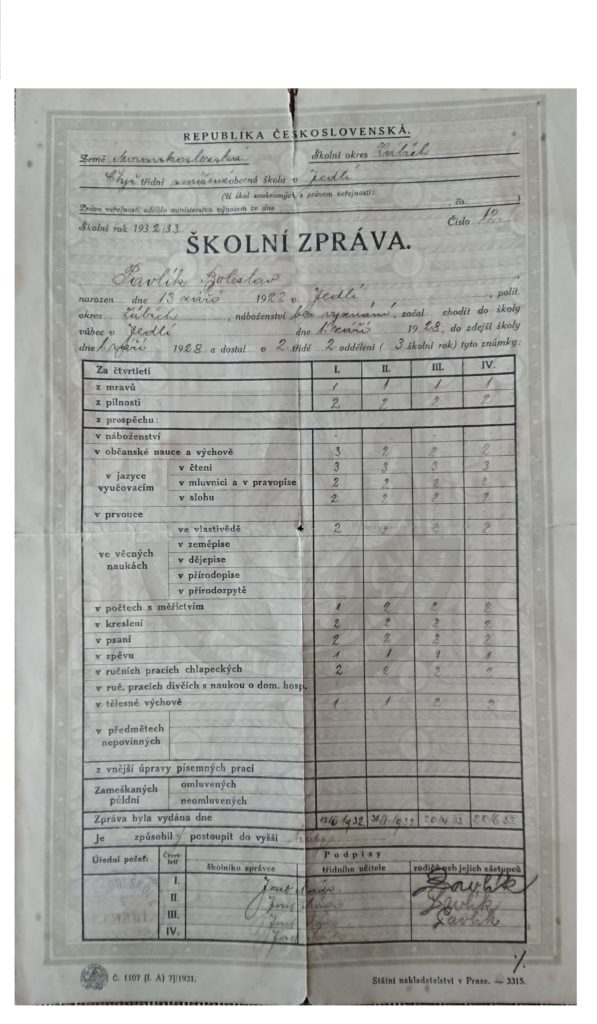 REPUBLIKA ČESKOSLOVENSKÁ.
Země Moravskoslezská Školní okres Zábřeh
třídní obecná škola v Jedlí
(U škol soukromých s právem veřejnosti:
Právo veřejnosti udělilo ministerstvo výnosem ze dne , čís. )
Školní rok 1932/33 Číslo 12
ŠKOLNÍ ZPRÁVA.
Pavlík Boleslav ,
narozen dne 13 září 1922 v Jedlí , polit.
okres Zábřeh , náboženství bez vyznání, začal chodit do školy
vůbec v Jedlí dne 1. září 1928, do zdejší školy
dne 1. září 1928 a dostal v 2 třídě 2 oddělení ( 3 školní rok) tyto známky:
Za čtvrtletí I. II. III. IV.
z mravů 1 1 1 1
z pilnosti 2 2 2 2
z prospěchu:
v náboženství
v občanské nauce a výchově 3 2 2 2
v jazyce vyučovacím
v čtení 3 3 3 3
v mluvnici a v pravopise 2 2 2 2
v slohu 2 2 2 2
v prvouce
ve věcných naukách
ve vlastivědě 2 2 2 2
v zeměpise
v dějepise
v přírodopise
v přírodozpytě
v počtech s měřictvím 1 2 2 2
v kreslení 2 2 2 2
v psaní 2 2 2 2
v zpěvu 1 1 1 1
v ručních pracích chlapeckých 2 2 2 2
v ruč. pracích dívčích s naukou o dom. hosp.
v tělesné výchově 1 1 2 2
v předmětech nepovinných
z vnější úpravy písemných prací
Zameškaných půldní
omluvených
neomluvených
Zpráva byla vydána dne 28/6 33
Je způsobilý postoupit do vyšší třídy
Úřední pečeť: Čtvrtletí Podpisy
školního správce třídního učitele rodičů neb jejich zástupců
I. Josef Pavlík
II. Josef Pavlík
III. Josef Pavlík
IV. Josef
Č. 1107 [I. A) 7]/1931. Státní nakladatelství v Praze. — 3315.